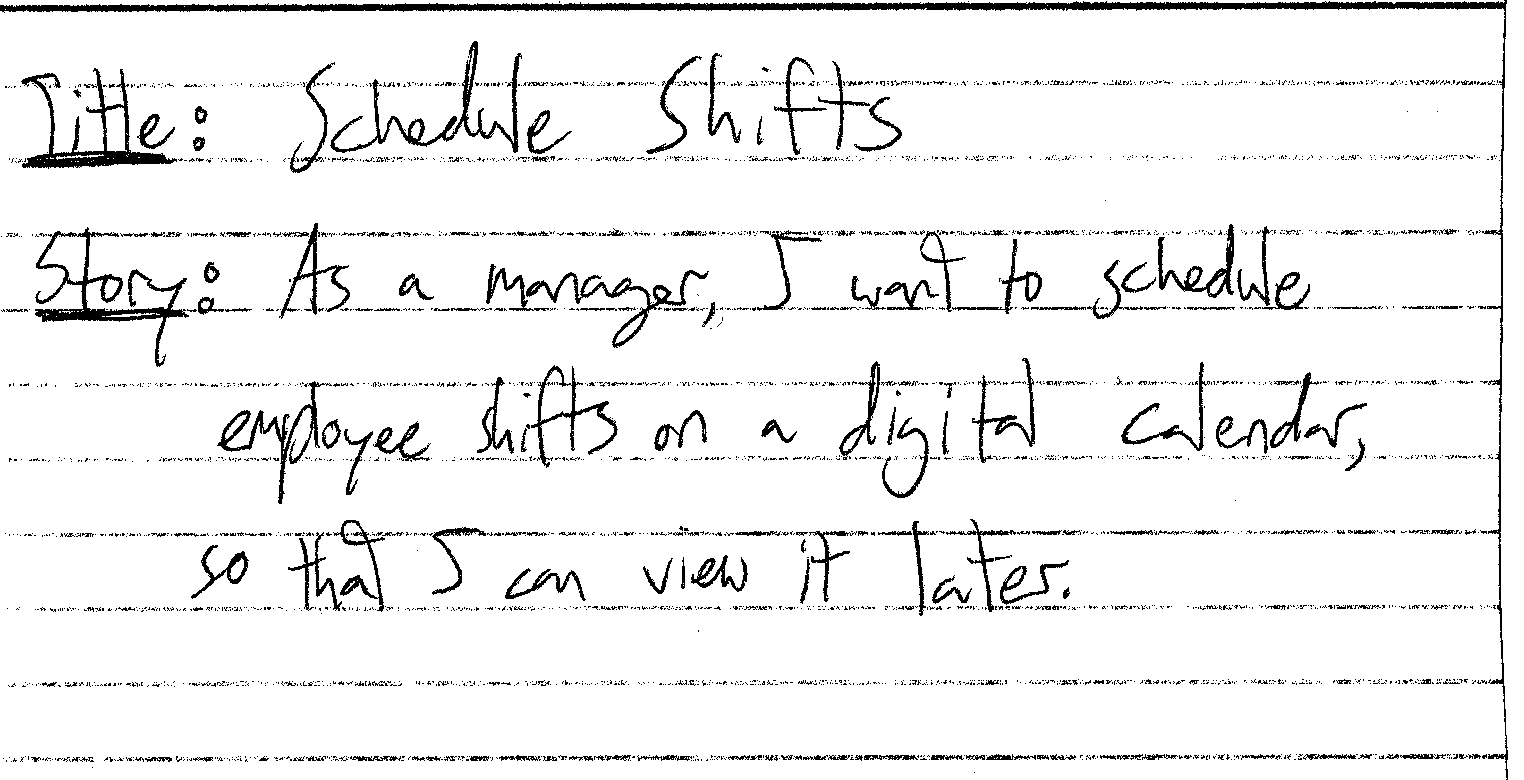 Title: Schedule Shifts
Story: As a manager, I want to schedule
employee shifts on a digital calendar,
so that I can view it later.